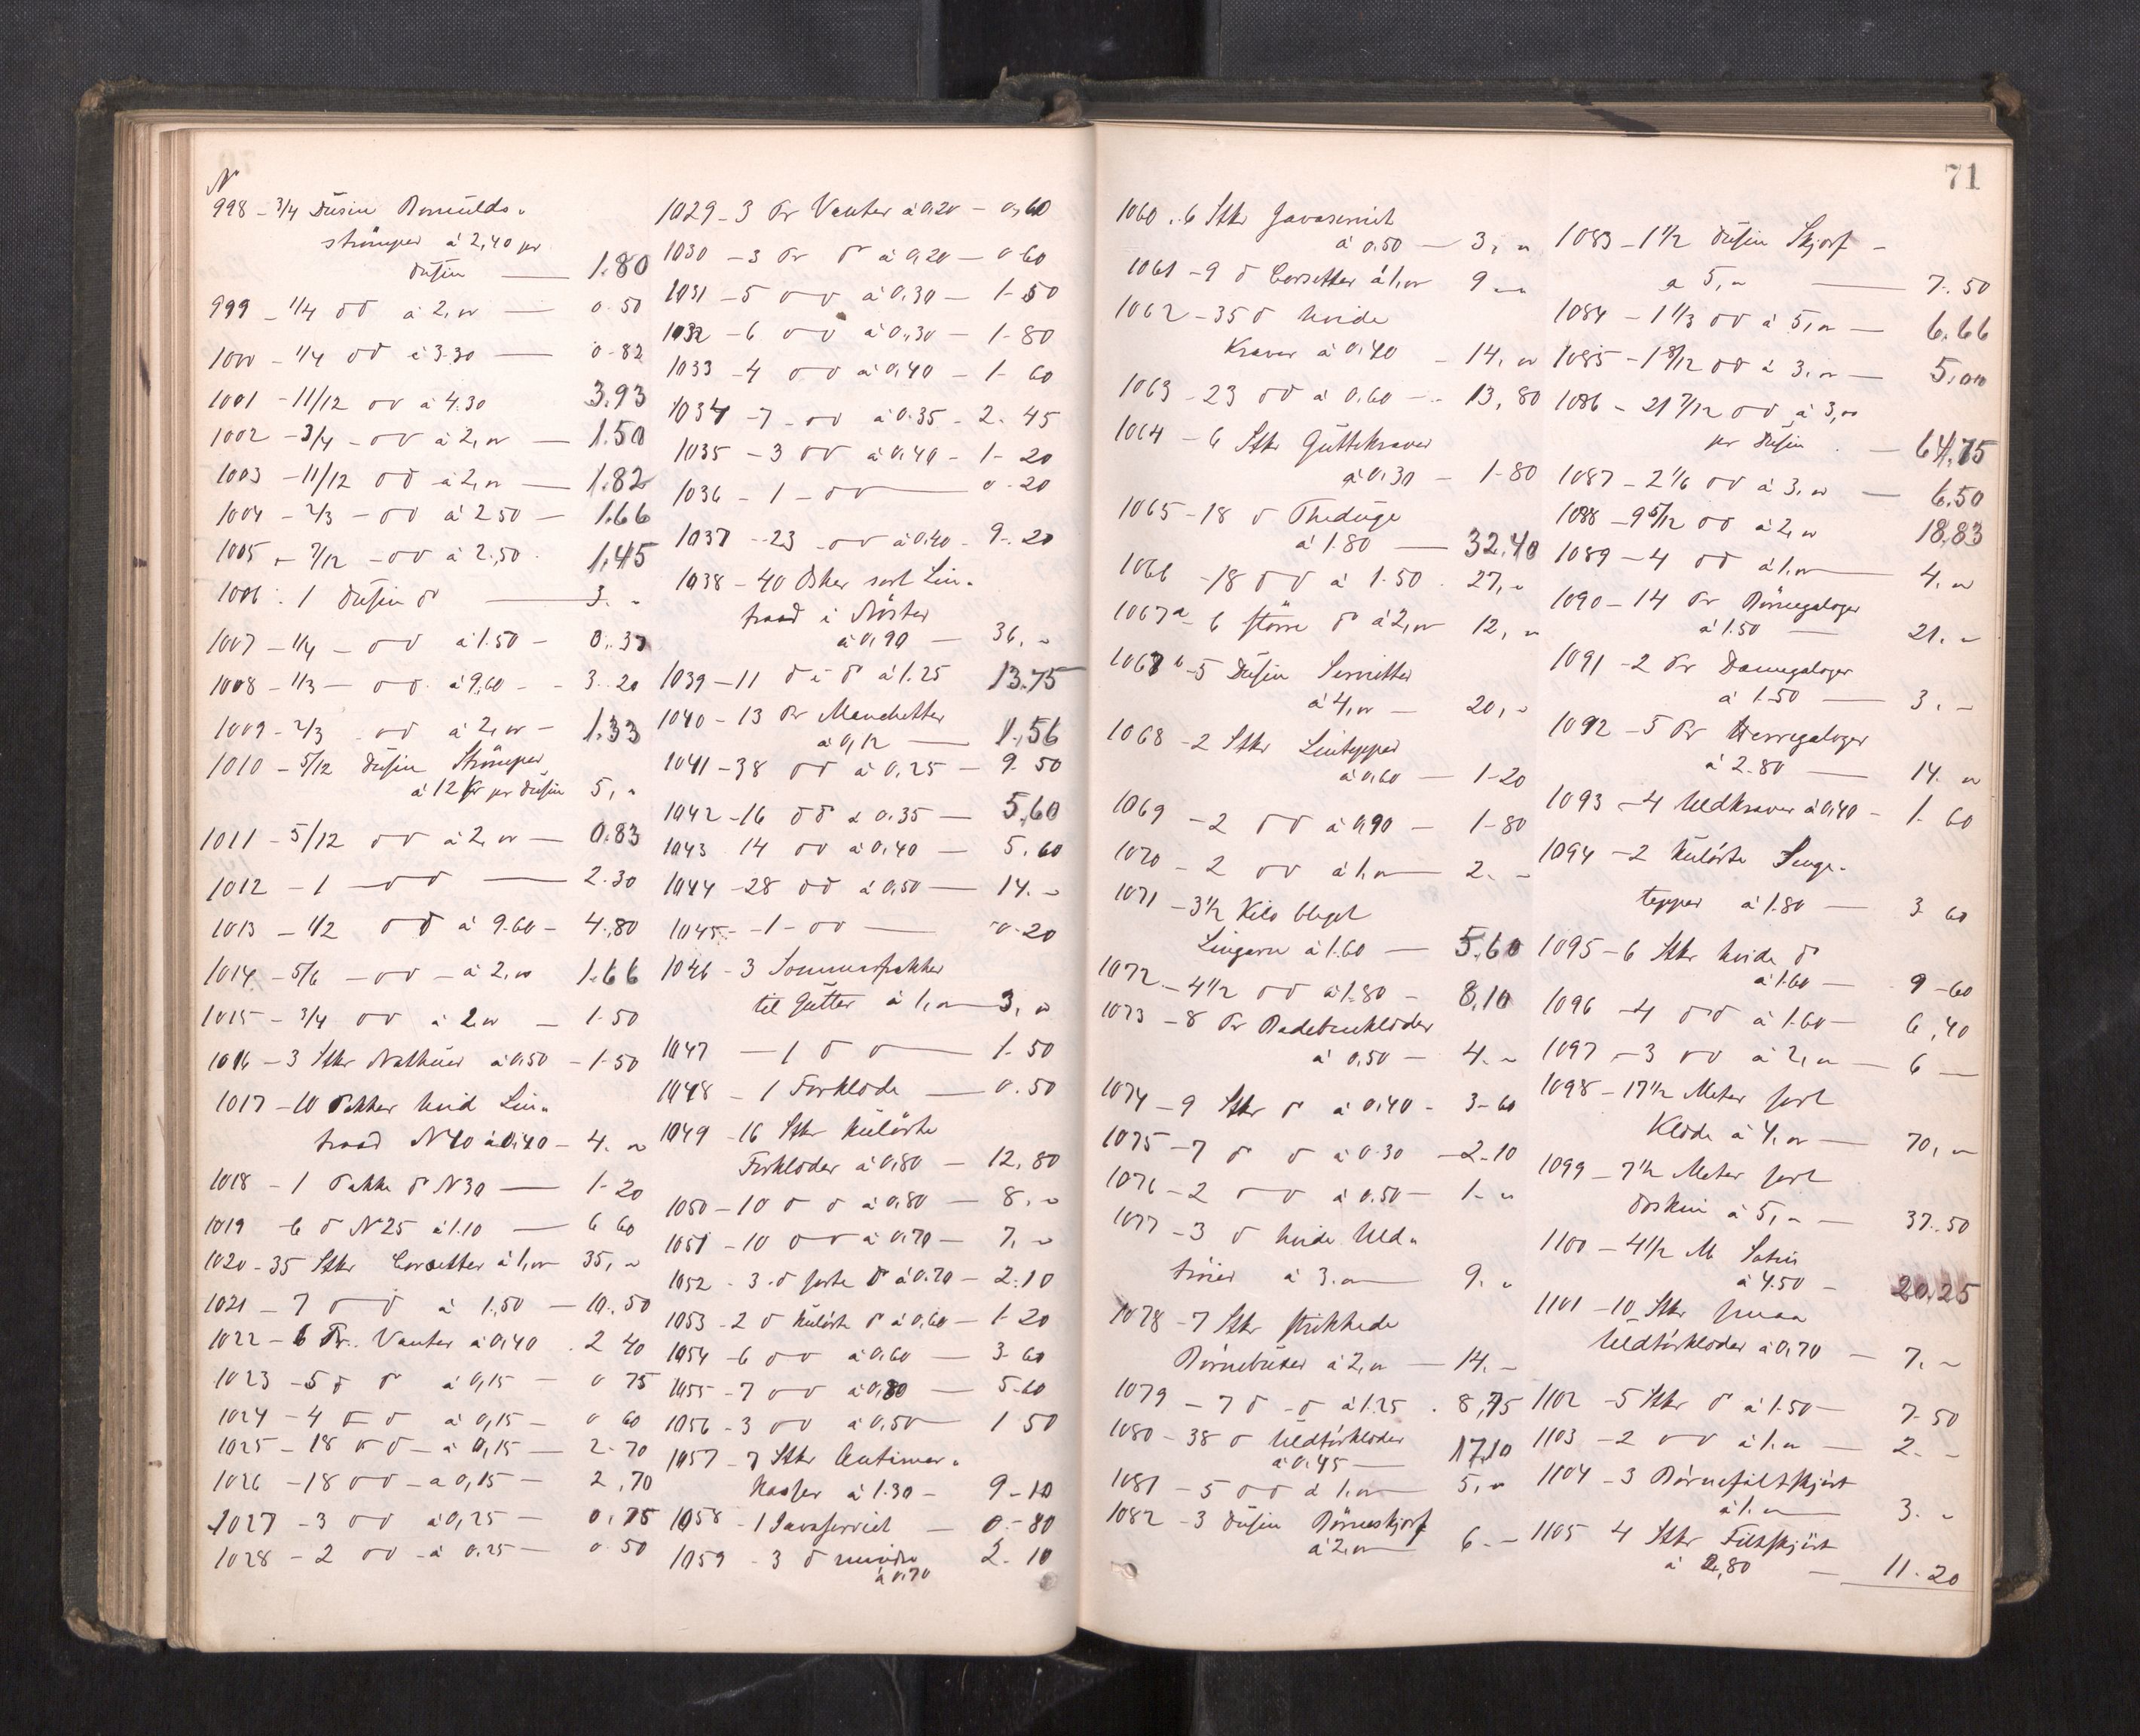 N
998 - 3/4 Dusin Bomulds-
strömper à 2,40 pr
Dusin — 1.80
999 - 1/4 do à 2,00 — 0.50
1000 - 1/4 do à 3.30 — 0.82
1001 - 11/12 do à 4.30 3.93
1002 - 3/4 - do à 2,00 — 1.50
1003 - 11/12 do à 2,00 — 1.82
1004 - 2/3 - do à 2 50 — 1.66
1005 - 7/12 - do à 2.50 1.45
1006 . 1 Dusin do — 3. "
1007 - 1/4 - do à 1.50 - 0.37
1008 - 1/3 - do à 9,60 - 3.20
1009 - 2/3 do à 2,00 - 1.33
1010 - 5/12 Dusin Strömper
à 12 Kr pr Dusin 5, "
1011 - 5/12 do à 2,00 — 0.83
1012 - 1 - do — 2.30
1013 - 1/2 do à 9.60 - 4.80
1014 - 5/6 - do - à 2,00 1.66
1015 - 3/4 do à 2,00 — 1.50
1016 - 3 Stkr Nathuer à 0,50 - 1.50
1017 - 10 Pakker hvid Lin-
traad N 40 à 0,40 - 4. "
1018 - 1 Pakke do N 30 — 1-20
1019 - 6 do N 25 à 1.10 — 6 60
1020 - 35 Stkr Corsetter à 1,00 35, "
1021 - 7 do à 1,50 — 10.50
1022 - 6 Pr. Vanter à 0,40 . 2 40
1023 - 5 do à 0,15 — 0 75
1024 - 4 do à 0,15 - 0 60
1025 - 18 do - à 0,15 — 2-70
1026 - 18 do - à 0,15 - 2,70
1027 - 3 do à 0,25 - 0.75
1028 - 2 do à 0.25 - 0.50
1029 - 3 Pr Vanter à 0.20 - 0,60
1030 - 3 Pr do à 0,20 - 0 60
1031 - 5 do à 0.30 - 1-50
1032 - 6 do à 0.30 - 1-80
1033 - 4 do à 0,40 - 1-60
1034 - 7 - do à 0.35 - 2.45
1035 - 3 do à 0,40 - 1-20
1036 - 1 - do — 0-20
1037 - 23 - do à 0,40 - 9-20
1038 - 40 Æsker sort Lin-
traad i Nöster
à 0,90 — 36, "
1039 - 11 do i do à 1.25 13.75
1040 - 13 Pr Manchetter
à 0,12 — 1,56
1041 - 38 do à 0,25 - 9 50
1042 - 16 do à 0.35 — 5,60
1043 14 do à 0,40 — 5.60
1044 - 28 do à 0,50 — 14. "
1045 - 1 - do — 0.20
1046 - 3 Sommerfrakker
til Gutter à 1, " 3, "
1047 - 1 do — 1.50
1048 - 1 Forklæde — 0.50
1049 - 16 Stkr kulörte
Forklæder à 0,80 — 12.80
1050 - 10 do à 0,80 — 8. "
1051 - 10 do à 0,70 — 7. "
1052 - 3 do sorte do à 0.70 - 2.10
1053 - 2 do kulörte do à 0,60 - 1-20
1054 - 6 do à 0.60 — 3-60
1055 - 7 do à 0,80 — 5-60
1056 - 3 do à 0,50 1 50
1057 - 7 Stkr Antimar-
kasser à 1.30 - 9-10
1058 - 1 Javaserviet — 0-80
1059 - 3 do mindre 2.10
à 0.70
71
1060 . 6 Stkr Javaserviet
à 0.50 — 3, "
1061 - 9 do Corsetter à 1,00 9 "
1062 - 35 do hvide
Kraver à 0,40 - 14, "
1063 - 23 do à 0,60 - 13,80
1064 - 6 Stkr Guttekraver
à 0,30 - 1-80
1065 - 18 do Theduge
à 1.80 — 32.40
1066 - 18 do à 1.50 . 27, "
1067a - 6 större do à 2,00 12, "
1067b - 5 Dusin Servietter
à 4,00 — 20, "
1068 - 2 Stkr Lintepper
à 0,60 — 1-20
1069 - 2 do à 0,90 — 1-80
1070 - 2 do à 1,00 2. "
1071 - 3 1/2 Kilo bleget
Lingarn à 1.60 — 5.60
1072 - 4 1/2 do à 1.80 - 8,10
1073 - 8 Pr Badebenklæder
à 0,50 — 4. "
1074 - 9 Stkr do à 0,40 - 3-60
1075 - 7 do à 0.30 - 2-10
1076 - 2 do à 0.50 - 1. "
1077 - 3 do hvide Uld-
tröier à 3. " 9. "
1078 - 7 Stkr strikkede
Börnebuxer à 2,00 — 14. "
1079 - 7 do à 1.25 . 8,75
1080 - 38 do Uldtörklæder
à 0.45 — 17.10
1081 - 5 do à 1,00 5, "
1082 - 3 Dusin Börneskjorf
à 2,00 6. "
1083 - 1 1/2 Dusin Skjorf -
à 5, " — 7.50
1084 - 1 1/3 do à 5,00 — 6.66
1085 - 1 8/12 do à 3,00 — 5,00
1086 - 21 7/12 do à 3,00
pr Dusin - 64,75
1087 - 2 1/6 do à 3,00 — 6,50
1088 - 9 5/12 do à 2,00 18,83
1089 - 4 do à 1,00 4. "
1090 - 14 Pr Börnegaloger
à 1.50 — 21. "
1091 - 2 Pr Damegaloger
à 1.50 — 3. "
1092 - 5 Pr Herregaloger
à 2.80 — 14. "
1093 - 4 Uldkraver à 0,40 - 1-60
1094 - 2 kulörte Senge-
tepper à 1.80 — 3-60
1095 - 6 Stkr hvide do
à 1.60 — 9-60
1096 - 4 do à 1.60 — 6,40
1097 - 3 do à 2, " — 6 —
1098 - 17 1/2 Meter sort
Klæde à 4,00 — 70, "
1099 - 7 1/2 Meter sort
Doskin à 5, " — 37.50
1100 - 4 1/2 M Satin
à 4.50 - 20.25
1101 - 10 Stkr smaa
Uldtörklæder à 0,70 — 7. "
1102 - 5 Stkr do à 1.50 — 7-50
1103 - 2 do à 1. " — 2. "
1104 - 3 Börnefiltskjört
à 1. " 3. "
1105 4 Stkr Filtskjört
à 2,80 — 11.20